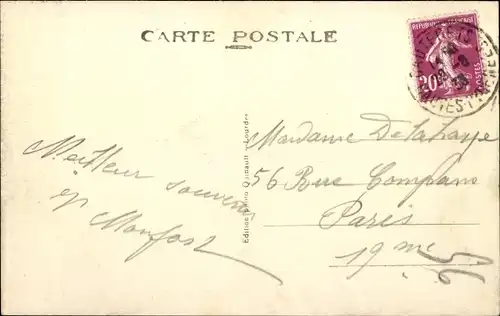 CARTE POSTALE
REPUBLIQUE FRANÇAISE
20
POSTES
CAUTERETS
Meilleur souvenir
Monfort
Edition
Lourdes
Madame Delahaye
56 Rue Compans
Paris
19me